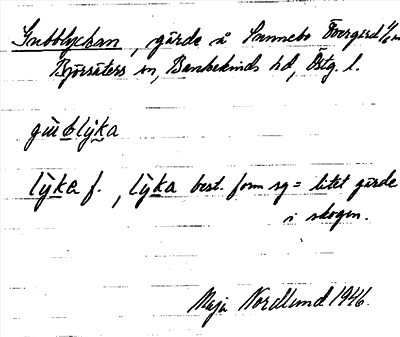 Gubblyckan, gärde å Sannebo Övergård
Björsäters sn, Bankekinds hd, Östg. l.
gu̇b̲lẏk̲a
lẏk̲a f., lẏk̲a best. form sg = litet gärde
i skogen.
Maja Nordlund 1946.